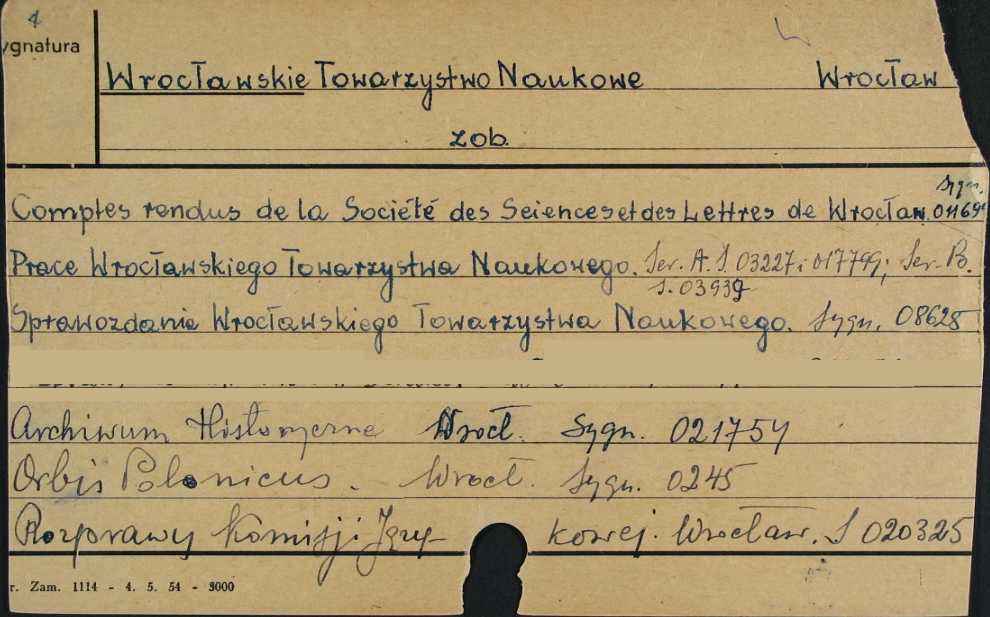 4
ygnatura
Wrocławskie Towarzystwo Naukowe Wrocław
zob.
Sygn.
Comptes rendus de la Société des Seiences et des Lettres de Wrocław. 01169
Prace Wrocławskiego Towarzystwa Naukowego. Ser. A. S. 03227 i 017799; Ser. B.
S. 03939
Sprawozdania Wrocławskiego Towarzystwa Naukowego. Sygn. 08628
Archiwum Historyczne Wrocł. Sygn. 021754
Orbis Polonicus. Wrocł. Sygn. 0245
Rozprawy Komisji Języ- kowej. Wrocław. S 020325
r. Zam. 1114 - 4. 5. 54 - 3000